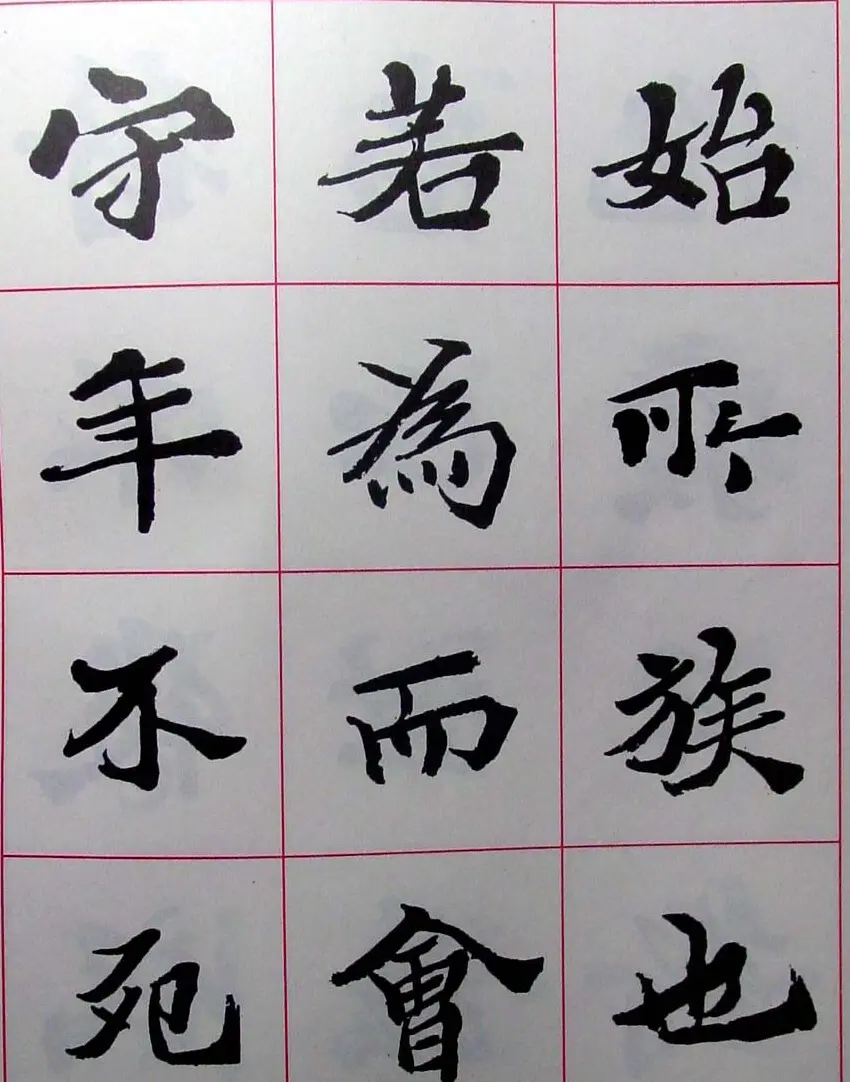 始所族也
若為而會
守年不死